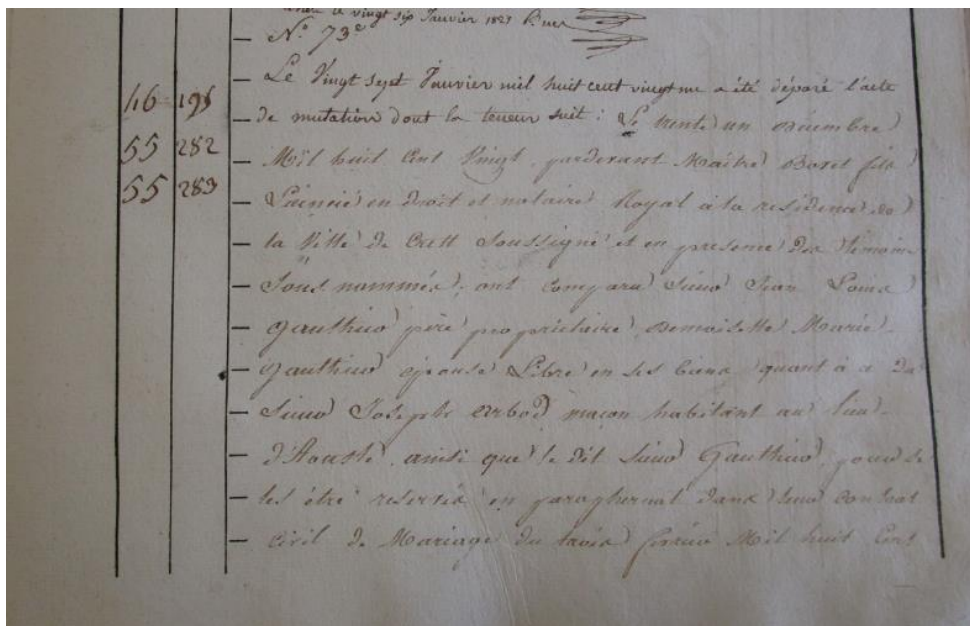 vingt six Janvier 1821
N.º 73e
Le Vingt sept Janvier mil huit cent vingt un a été déposé l'acte
46 195 de mutation dont la teneur suit : Le trente un Décembre
55 282 Mil huit Cent Vingt, pardevant Maitre Boret fils
55 283 Licencié en droit et notaire Royal à la résidence de
la Ville de Crest Soussigné et en presence des témoins
Sous nommés, ont Comparu Sieur Jean Louis
Gauthier père propriétaire Demoiselle Marie
Gauthier épouse Libre en ses biens quant à ce Du
Sieur Joseph Arbod maçon habitant au lieu
d'Aouste, ainsi que le dit Sieur Gauthier, pour se
les être reservés en paraphernal dans leur contrat
Civil de Mariage du trois fevrier Mil huit Cent